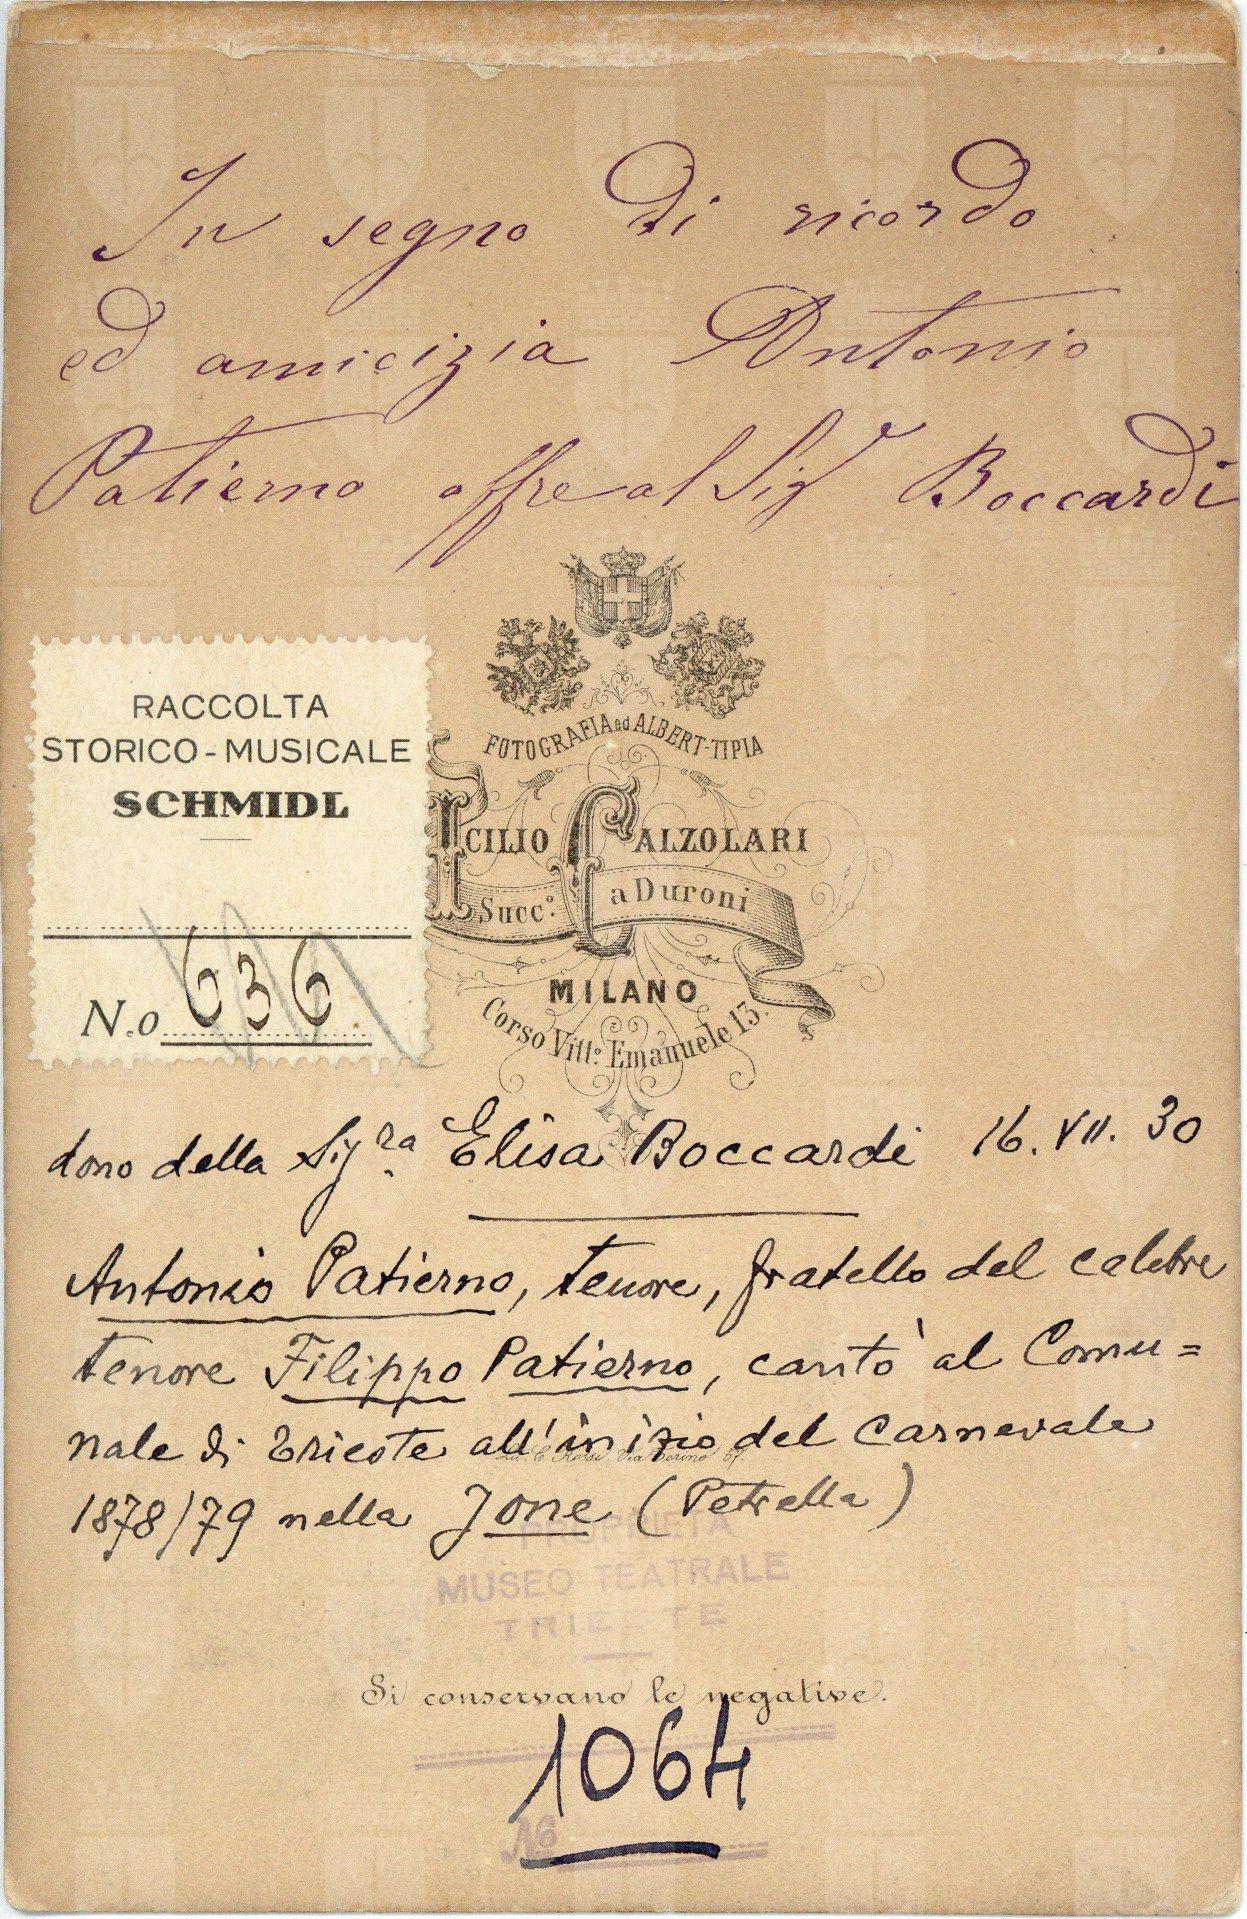 In segno di ricordo
ed amicizia Antonio
Patierno offre al Sigr Boccardi
RACCOLTA
STORICO-MUSICALE
SCHMIDL
N.o 636
FOTOGRAFIA ed ALBERT-TIPIA
ICILIO CALZOLARI
Succ.o a Duroni
MILANO
Corso Vitt.o Emanuele 13.
dono della Sigra Elisa Boccardi 16. VII. 30
Antonio Patierno, tenore, fratello del celebre
tenore Filippo Patierno, cantò al Comu=
nale di Trieste all'inizio del Carnevale
1878/79 nella Jone (Petrella)
PROPRIETÀ
MUSEO TEATRALE
TRIESTE
Si conservano le negative.
1064
No